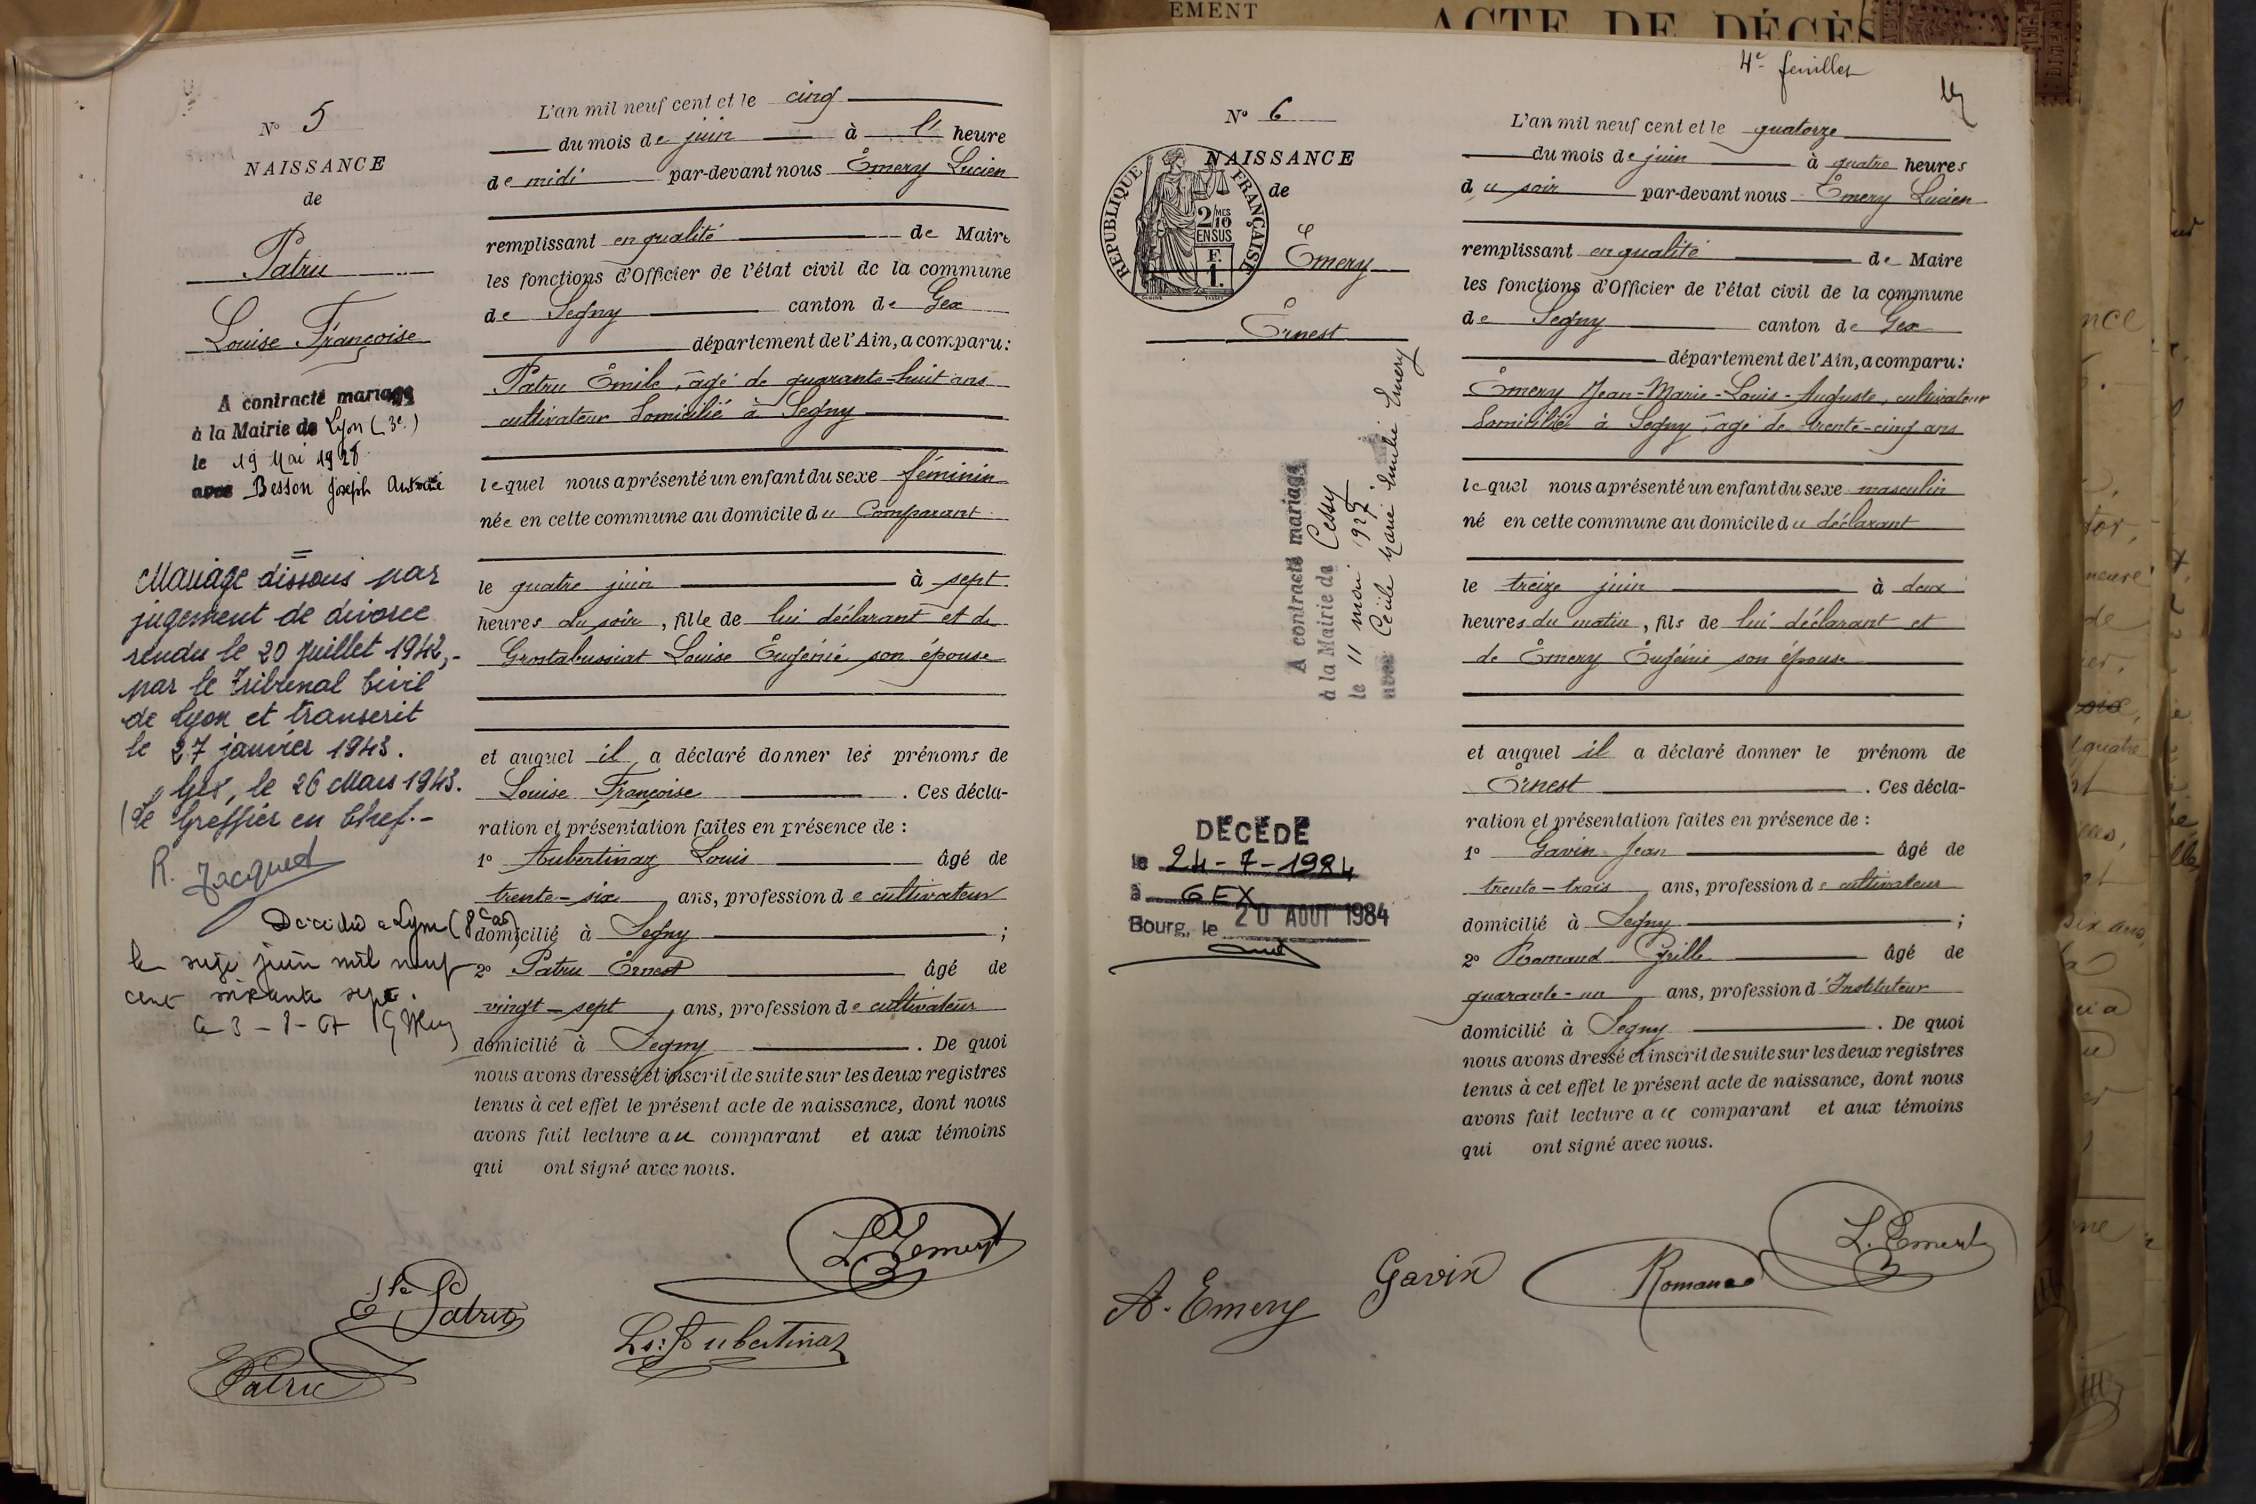 EMENT
ACTE DE DÉCÈS
N° 5
NAISSANCE
de
Patru
Louise Françoise
A contracté mariage
à la Mairie de Lyon (3e)
le 19 Mai 1928
avec Besson Joseph Antoine
Mariage dissous par
jugement de divorce
rendu le 20 Juillet 1942,-
par le Tribunal Civil
de Lyon et transcrit
le 27 janvier 1943.
Gex, le 26 Mars 1943.
Le Greffier en Chef.-
R. Jacquet
Décédée à Lyon (8e
le juin mil neuf
cent soixante sept.
L'an mil neuf cent et le cinq
du mois de juin à heure
de midi par-devant nous Émery Lucien
remplissant en qualité de Maire
les fonctions d'Officier de l'état civil de la commune
de Segny canton de Gex
département de l'Ain, a comparu:
Patru Émile, âgé de quarante-huit ans
cultivateur domicilié à Segny
lequel nous a présenté un enfant du sexe féminin
née en cette commune au domicile du Comparant
le quatre juin à sept
heures du soir, fille de lui déclarant et de
Grostabussiat Louise Eugénie son épouse
et auquel il a déclaré donner les prénoms de
Louise Françoise. Ces décla-
ration et présentation faites en présence de :
1° Aubertinaz Louis âgé de
trente-six ans, profession de cultivateur
domicilié à Segny ;
2° Patru Ernest âgé de
vingt-sept ans, profession de cultivateur
domicilié à Segny. De quoi
nous avons dressé et inscrit de suite sur les deux registres
tenus à cet effet le présent acte de naissance, dont nous
avons fait lecture au comparant et aux témoins
qui ont signé avec nous.
L. Emery
Patru
Ls: Aubertinaz
Patru
4e feuillet
N° 6
NAISSANCE
de
RÉPUBLIQUE FRANÇAISE
2/10MES
EN SUS
F.
1.
Émery
Ernest
A contracté mariage
à la Mairie de Cessy
le 11 mai 1927
avec Cécile Marie Emilie Emery
DÉCÉDÉ
le 24-7-1984
à GEX
Bourg, le 20 AOUT 1984
L'an mil neuf cent et le quatorze
du mois de juin à quatre heures
du soir par-devant nous Émery Lucien
remplissant en qualité de Maire
les fonctions d'Officier de l'état civil de la commune
de Segny canton de Gex
département de l'Ain, a comparu:
Émery Jean-Marie-Louis-Auguste, cultivateur
domicilié à Segny, âgé de trente-cinq ans
lequel nous a présenté un enfant du sexe masculin
né en cette commune au domicile du déclarant
le treize juin à deux
heures du matin, fils de lui déclarant et
de Émery Eugénie son épouse
et auquel il a déclaré donner le prénom de
Ernest. Ces décla-
ration et présentation faites en présence de :
1° Gavin Jean âgé de
trente-trois ans, profession de cultivateur
domicilié à Segny ;
2° Romand âgé de
quarante-un ans, profession d'Instituteur
domicilié à Segny. De quoi
nous avons dressé et inscrit de suite sur les deux registres
tenus à cet effet le présent acte de naissance, dont nous
avons fait lecture au comparant et aux témoins
qui ont signé avec nous.
L. Emery
A. Emery Gavin Romand